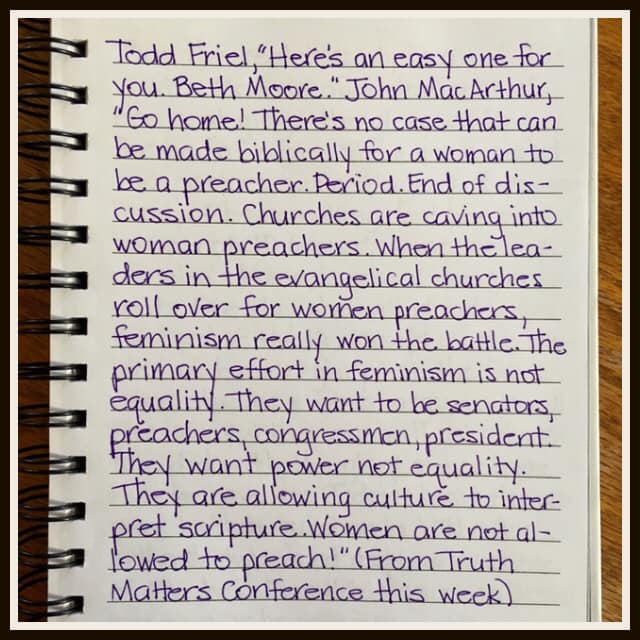 Todd Friel, "Here's an easy one for
you. Beth Moore." John MacArthur,
"Go home! There's no case that can
be made biblically for a woman to
be a preacher. Period. End of dis-
cussion. Churches are caving into
woman preachers. When the lea-
ders in the evangelical churches
roll over for women preachers,
feminism really won the battle. The
primary effort in feminism is not
equality. They want to be senators,
preachers, congressmen, president.
They want power not equality.
They are allowing culture to inter-
pret scripture. Women are not al-
lowed to preach!" (From Truth
Matters Conference this week)